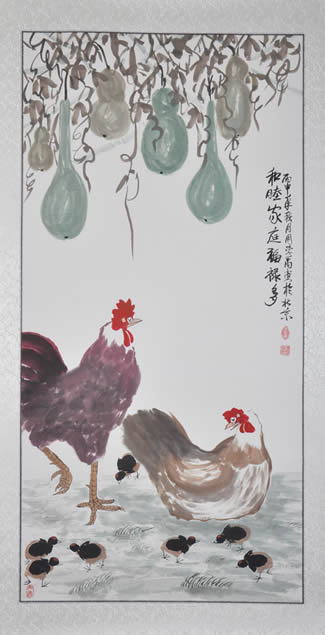 和睦家庭福禄多
丙申年秋月周
画于北京